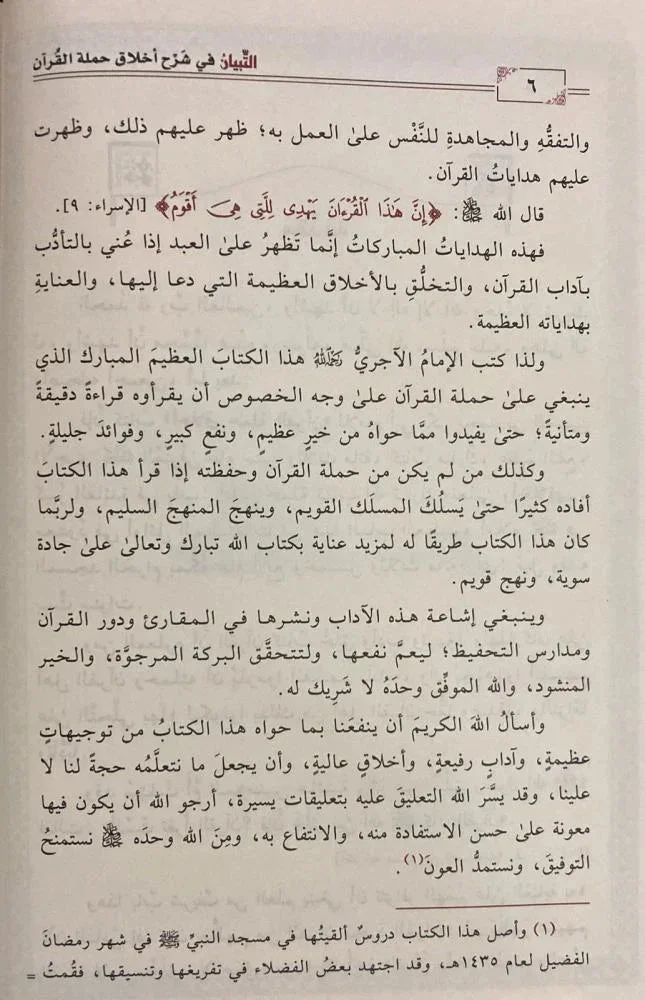 التِّبيانُ في شَرْحِ أخلاق حملة القُرآن
٦
والتفقُّهِ والمجاهدةِ للنَّفْس علىٰ العمل به؛ ظهر عليهم ذلك، وظهرت
عليهم هداياتُ القرآن.
قال الله ﷻ: ﴿إِنَّ هَٰذَا الْقُرْءَانَ يَهْدِى لِلَّتِى هِىَ أَقْوَمُ﴾ [الإسراء: ٩].
فهذه الهداياتُ المباركاتُ إنَّما تَظهرُ علىٰ العبد إذا عُني بالتأدُّب
بـآداب القرآن، والتخلُّقِ بـالأخلاق العظيمة التي دعا إليها، والعنايةِ
بهداياته العظيمة.
ولذا كتب الإمامُ الآجريُّ رَحِمَهُ اللَّهُ هذا الكتابَ العظيمَ المبارك الذي
ينبغي علىٰ حملة القرآن علىٰ وجه الخصوص أن يقرأوه قراءةً دقيقةً
ومتأنيةً؛ حتىٰ يفيدوا ممَّا حواهُ من خيرٍ عظيمٍ، ونفعٍ كبيرٍ، وفوائدَ جليلةٍ.
وكذلك من لم يكن من حملة القرآن وحفظته إذا قرأ هذا الكتابَ
أفاده كثيرًا حتىٰ يَسلُكَ المسلَك القويم، وينهجَ المنهجَ السليم، ولربَّما
كان هذا الكتاب طريقًا له لمزيد عناية بكتاب الله تبارك وتعالىٰ علىٰ جادة
سوية، ونهج قويم.
وينبغي إشاعة هذه الآداب ونشرها في المقارئ ودور القرآن
ومدارس التحفيظ؛ ليعمَّ نفعها، ولتتحقَّق البركة المرجوَّة، والخير
المنشود، والله الموفِّق وحدَهُ لا شَرِيك له.
وأسألُ اللهَ الكريمَ أن ينفعَنا بما حواه هذا الكتابُ من توجيهاتٍ
عظيمةٍ، وآدابٍ رفيعةٍ، وأخلاقٍ عاليةٍ، وأن يجعلَ ما نتعلَّمُه حجةً لنا لا
علينا، وقد يسَّرَ الله التعليقَ عليه بتعليقات يسيرة، أرجو الله أن يكون فيها
معونة علىٰ حسن الاستفادة منه، والانتفاع به، ومِنَ الله وحدَه ﷻ نستمنحُ
التوفيقَ، ونستمدُّ العونَ(١).
(١) وأصل هذا الكتاب دروسٌ ألقيتُها في مسجد النبيِّ ﷺ في شهر رمضانَ
الفضيل لعام ١٤٣٥هـ، وقد اجتهد بعضُ الفضلاء في تفريغها وتنسيقها، فقُمتُ =